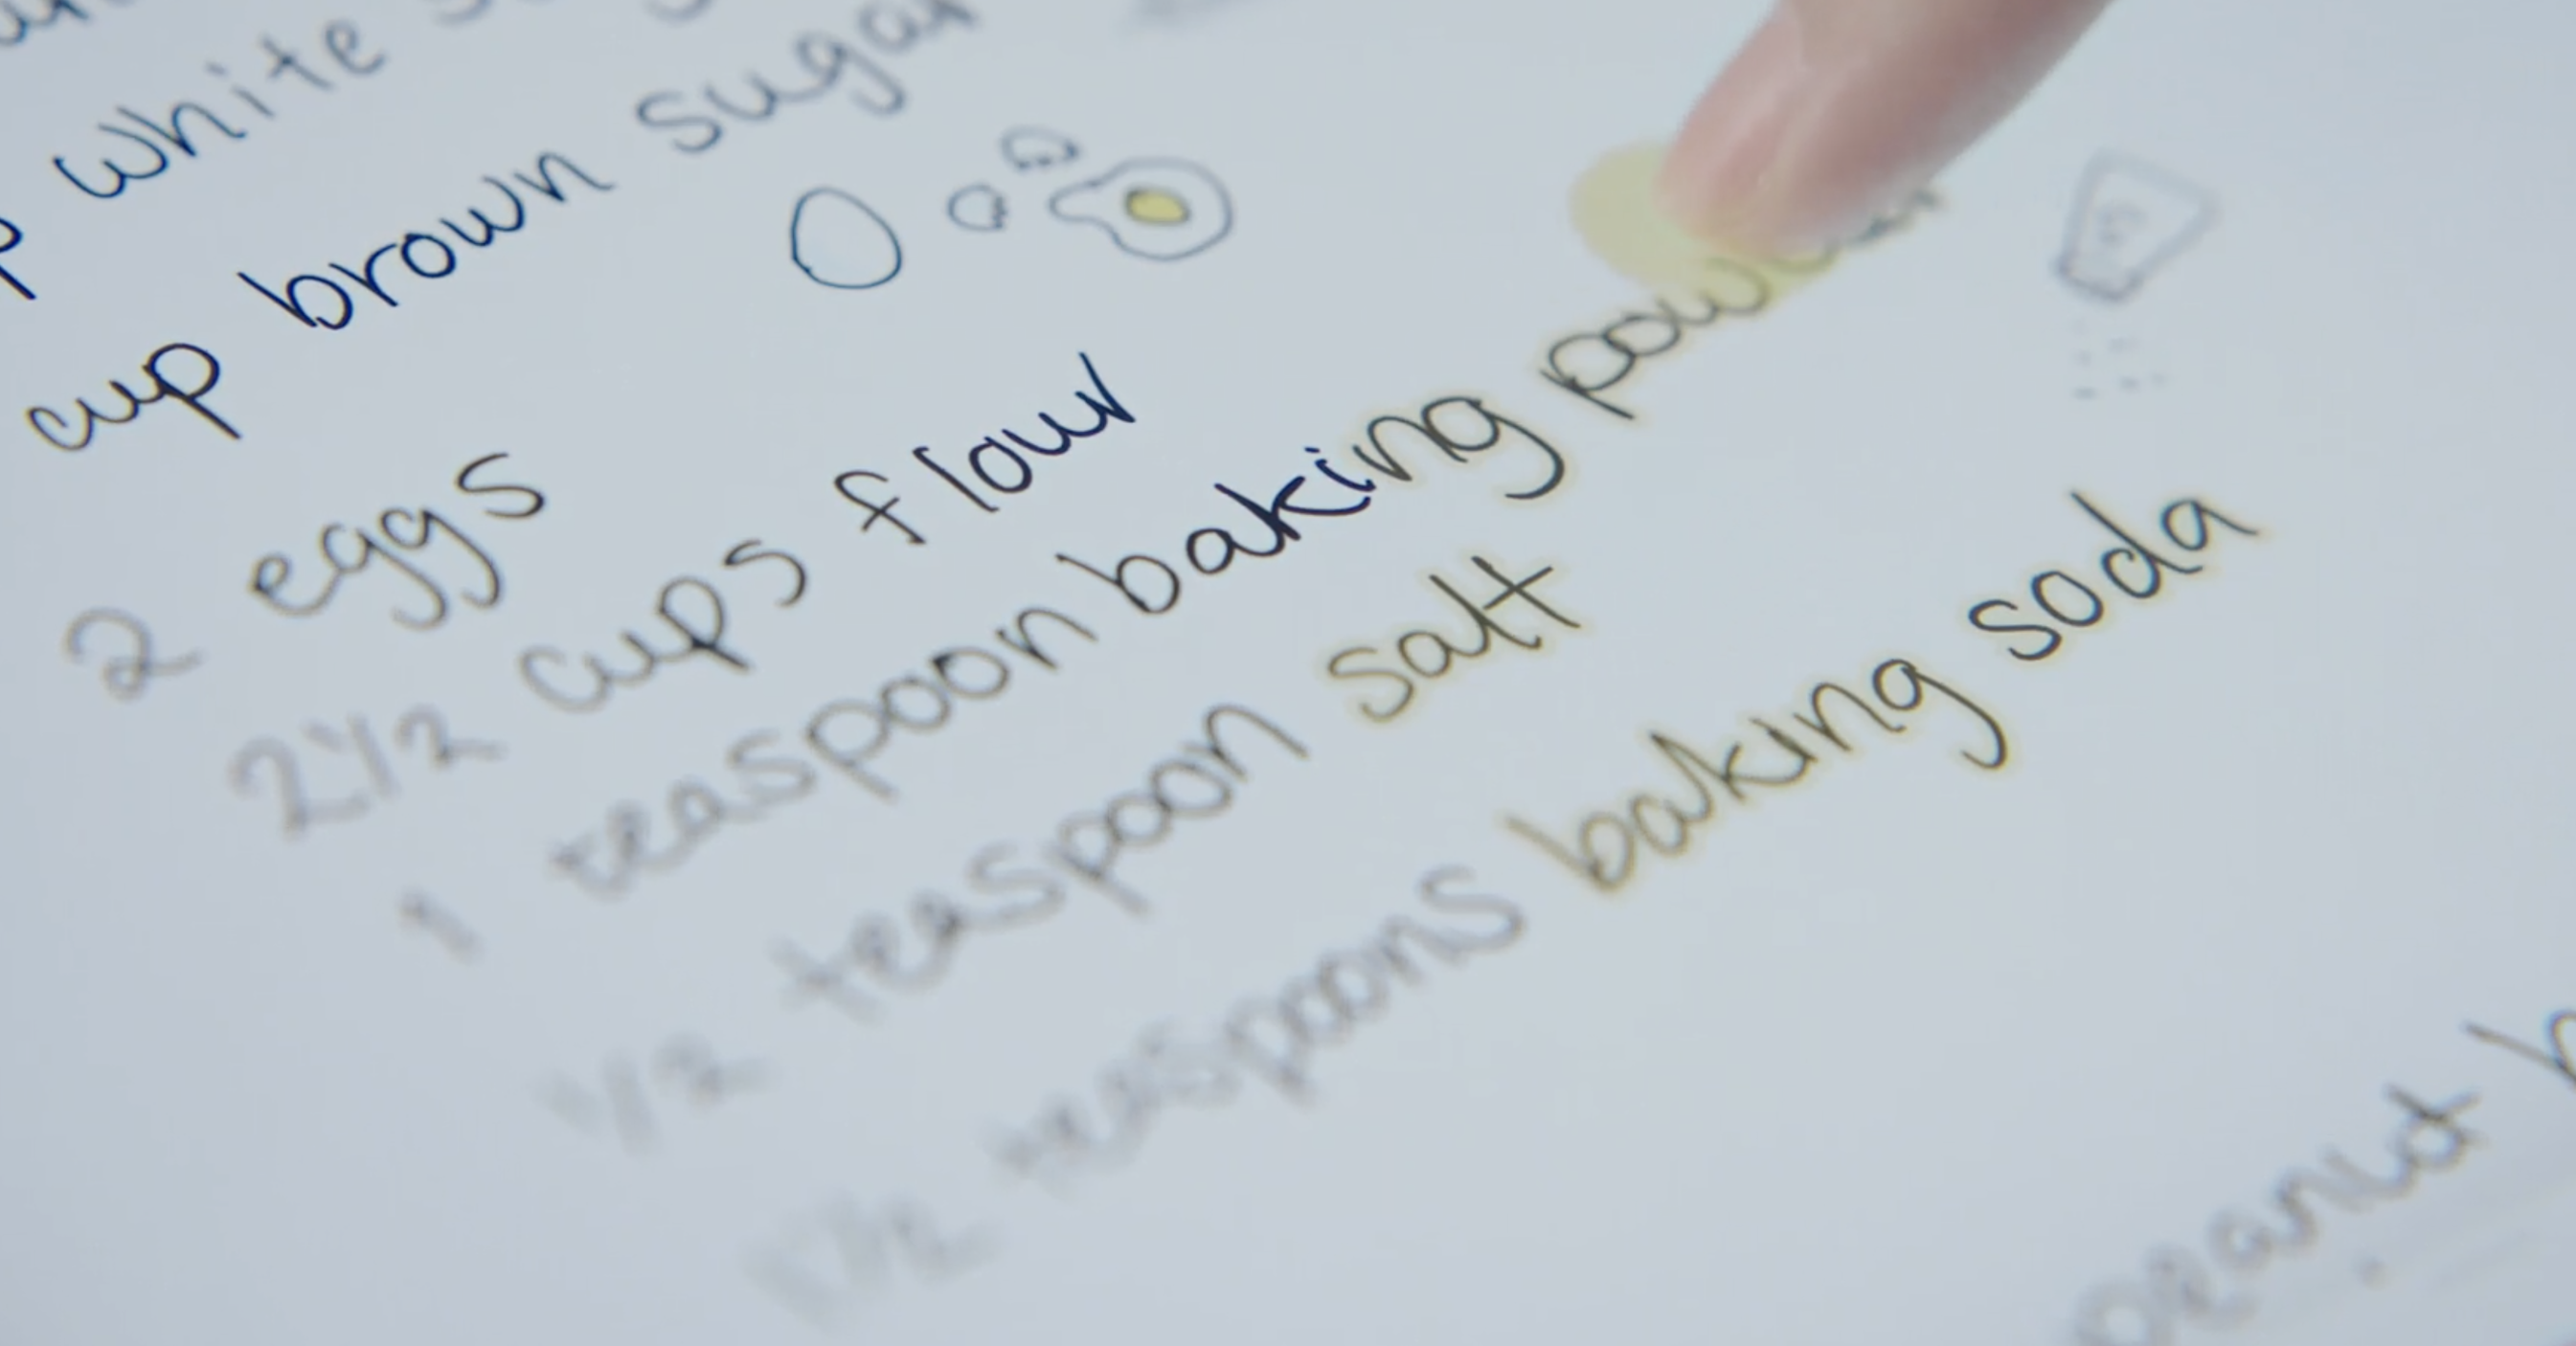 white
cup brown sugar
2 eggs
2 1/2 cups flour
1 teaspoon baking powder
1/2 teaspoon salt
1/2 teaspoons baking soda
peanut b